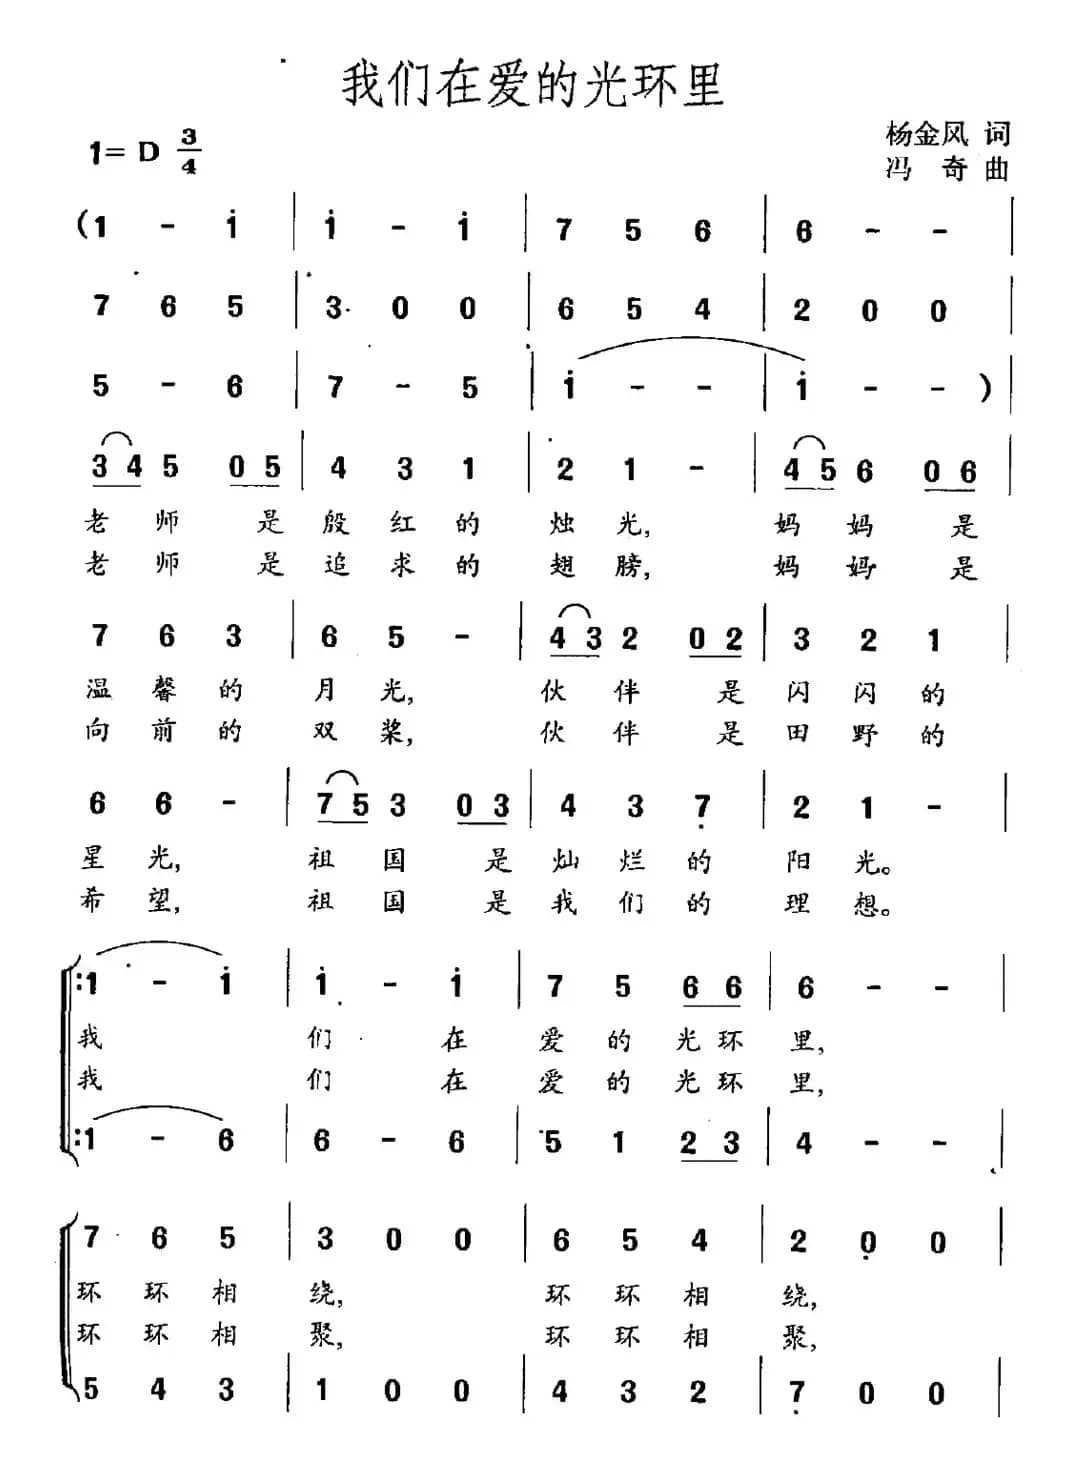 我们在爱的光环里
1= D 3/4
杨金凤 词
冯 奇 曲
(1 - i | i - i | 7 5 6 | 6 - - |
7 6 5 | 3 0 0 | 6 5 4 | 2 0 0 |
5 - 6 | 7 - 5 | i - - | i - - )
3 4 5 0 5 | 4 3 1 | 2 1 - | 4 5 6 0 6 |
老 师 是 殷 红 的 烛 光, 妈 妈 是
老 师 是 追 求 的 翅 膀, 妈 妈 是
7 6 3 | 6 5 - | 4 3 2 0 2 | 3 2 1 |
温 馨 的 月 光, 伙 伴 是 闪 闪 的
向 前 的 双 桨, 伙 伴 是 田 野 的
6 6 - | 7 5 3 0 3 | 4 3 7̣ | 2 1 - |
星 光, 祖 国 是 灿 烂 的 阳 光。
希 望, 祖 国 是 我 们 的 理 想。
:1 - i | i - i | 7 5 6 6 | 6 - - |
我 们 在 爱 的 光 环 里,
我 们 在 爱 的 光 环 里,
:1 - 6 | 6 - 6 | 5 1 2 3 | 4 - - |
7 6 5 | 3 0 0 | 6 5 4 | 2 0 0 |
环 环 相 绕, 环 环 相 绕,
环 环 相 聚, 环 环 相 聚,
5 4 3 | 1 0 0 | 4 3 2 | 7̣ 0 0 |